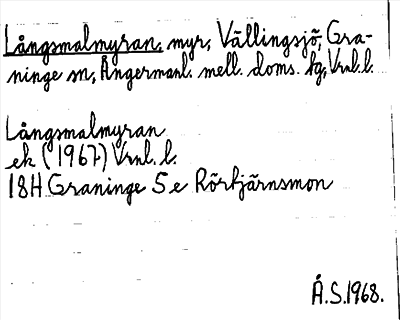 Långsmalmyran, myr, Vällingsjö, Gra-
ninge sn, Ångermanl. mell. doms. hg, Vrnl. l.
Långsmalmyran
ek (1967) Vrnl. l.
18H Graninge 5e Rörtjärnsmon
Å.S. 1968.